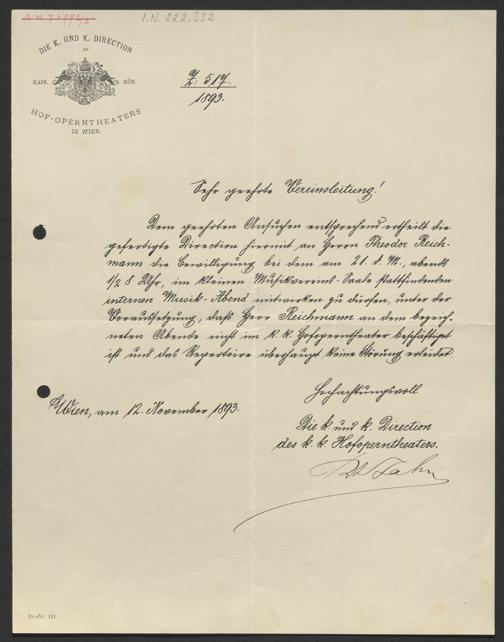 I.N. 222.332
DIE K. UND K. DIRECTION
DES
KAIS. KÖN.
HOF-OPERNTHEATERS
IN WIEN.
Z. 517.
1893.
Sehr geehrte Vereinsleitung!
Dem geehrten Ansuchen entsprechend ertheilt die
gefertigte Direction hiermit an Herrn Theodor Reich-
mann die Bewilligung bei dem am 21. d. M. abends
1/2 8 Uhr, im kleinen Musikvereins-Saale stattfindenden
internen Musik-Abend mitwirken zu dürfen, unter der
Voraussetzung, daß Herr Reichmann an dem bezeich-
neten Abende nicht im k. k. Hofoperntheater beschäftigt
ist und das Repertoire überhaupt keine Störung erleidet
Hochachtungsvoll
Wien, am 12. November 1893.
Die k. und k. Direction
des k. k. Hofoperntheaters.
Jahn